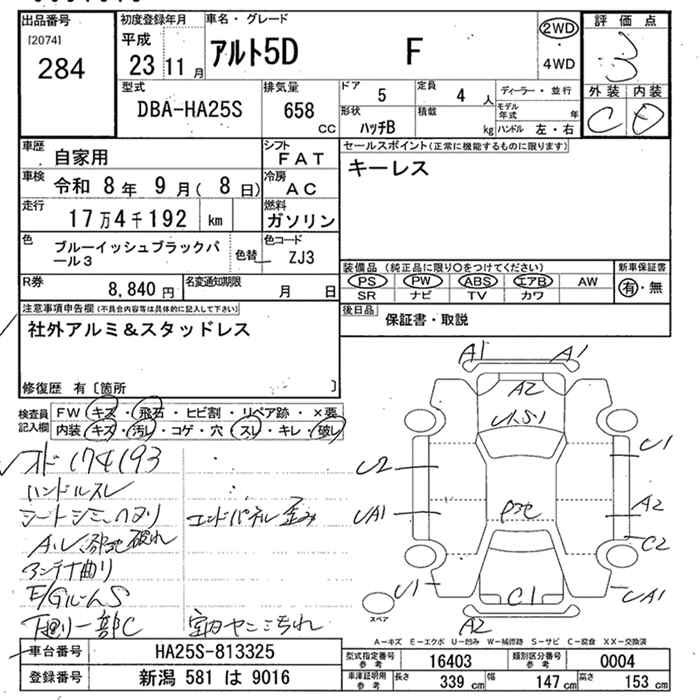 出品番号
[2074]
284
初度登録年月
平成
23 11 月
車名・グレード
アルト5D F
2WD
4WD
評価点
3
外装 内装
C D
型式
DBA-HA25S
排気量
658 cc
ドア
5
定員
4 人
形状
ハッチB
積載
kg
ディーラー・並行
モデル年式 年
ハンドル 左・右
車歴
自家用
シフト
FAT
車検
令和 8年 9月( 8日)
冷房
AC
走行
17万4千192 km
燃料
ガソリン
色
ブルーイッシュブラックパール3
色替
色コード
ZJ3
R券
8,840 円
名変通知期限
月 日
セールスポイント(正常に機能するものに限ります)
キーレス
装備品(純正品に限り○をつけてください)
PS PW ABS エアB AW
SR ナビ TV カワ
新車保証書
有・無
後日品
保証書・取説
注意事項申告欄(不具合内容等は具体的に記入して下さい)
社外アルミ&スタッドレス
修復歴 有〔箇所 〕
検査員記入欄
FW キズ・飛石・ヒビ割・リペア跡・×要
内装 キズ・汚レ・コゲ・穴・スレ・キレ・破レ
174193
ハンドルスレ
エンドパネル歪み
アンテナ曲り
E/GルームS
下廻り一部C
室内ヤニ汚れ
A1 A1
A2
U1.S1
U2
U1
UA1
A2
C2
U1
C1
UA1
A2
スペア
A-キズ E-エクボ U-凹み W-補修跡 S-サビ C-腐食 XX-交換済
車台番号
HA25S-813325
登録番号
新潟 581 は 9016
型式指定番号 参考
16403
類別区分番号 参考
0004
車庫証明用 参考
長さ 339 cm
幅 147 cm
高さ 153 cm